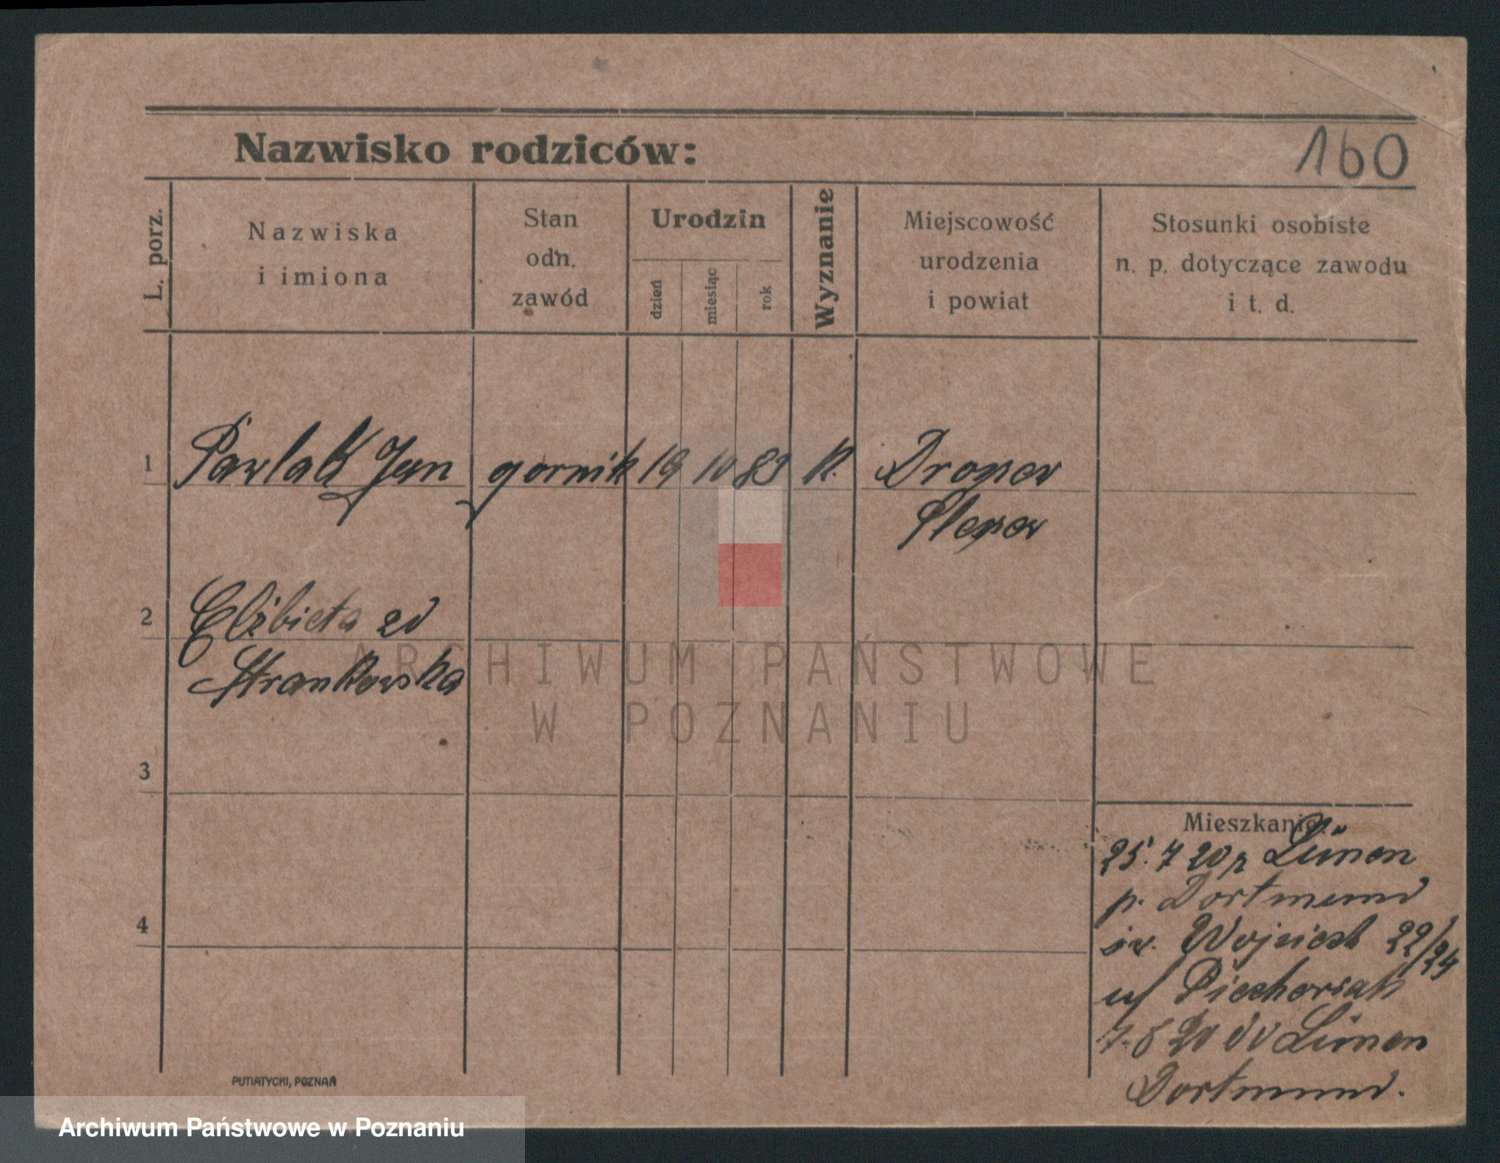 160
Nazwisko rodziców:
L. porz.
Nazwiska
i imiona
Stan
odn.
zawód
Urodzin
dzień
miesiąc
rok
Wyznanie
Miejscowość
urodzenia
i powiat
Stosunki osobiste
n. p. dotyczące zawodu
i t. d.
1 Pawlak Jan gornik 19 10 89 K.
2 Elżbieta zd
Strankowska
3
4
Mieszkanie
25. 7 20 z Lünen
p. Dortmund
św. Wojciech 22/24
u/ Piechorsak
7. 8 20 do Lünen
Dortmund.
PUTIATYCKI, POZNAŃ
ARCHIWUM PAŃSTWOWE
W POZNANIU
Archiwum Państwowe w Poznaniu